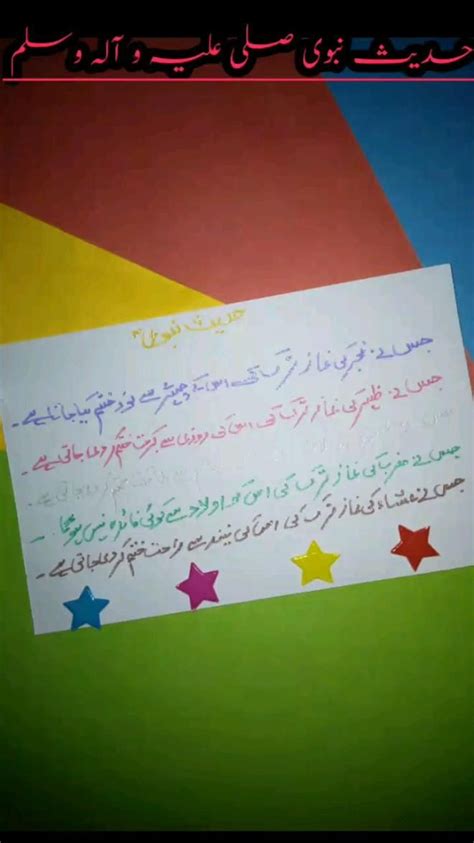 حدیث نبوی صلی علیہ و آلہ وسلم
حدیث نبوی
جس نے فجر کی نماز ترک کی اس کے چہرے سے نور ختم کیا جاتا ہے۔
جس نے ظہر کی نماز ترک کی اس کی روزی سے برکت ختم کر دی جاتی ہے۔
جس نے مغرب کی نماز ترک کی اس کو اولاد سے کوئی فائدہ نہیں ہوگا۔
جس نے عشاء کی نماز ترک کی اس کی نیند سے راحت ختم کر دی جاتی ہے۔